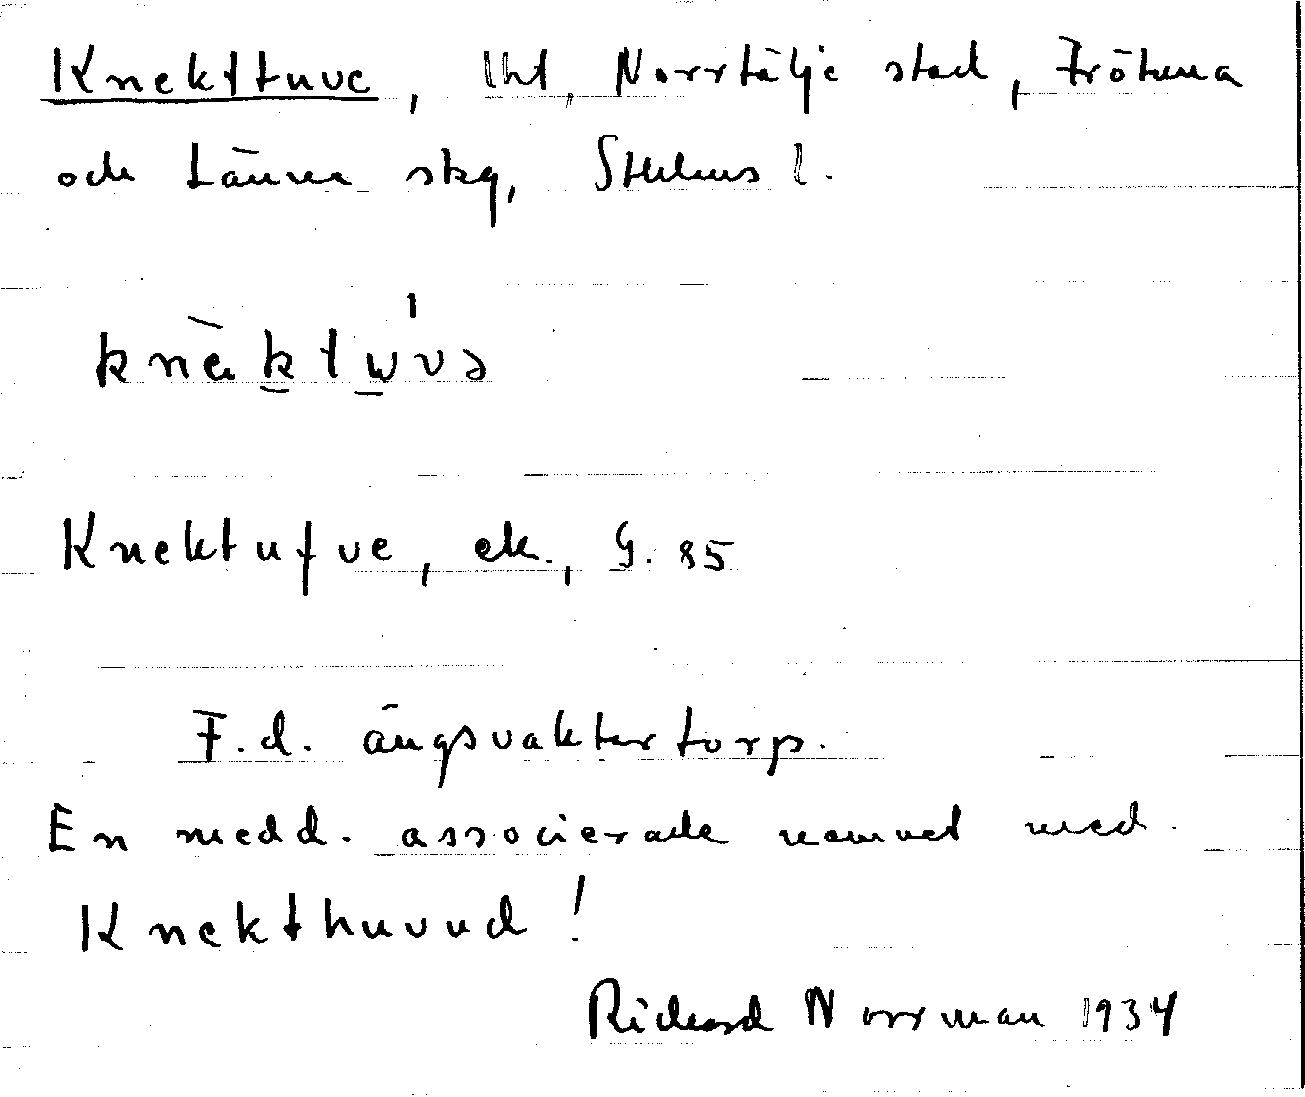 Knekttuve, lht, Norrtälje stad, Frötuna
och Länna skg, Sthlms l.
knäktwvə
Knektufve, ek., G. 85
F.d. ängsvaktartorp.
En medd. associerade namnet med
Knekthuvud!
Richard Norrman 1934